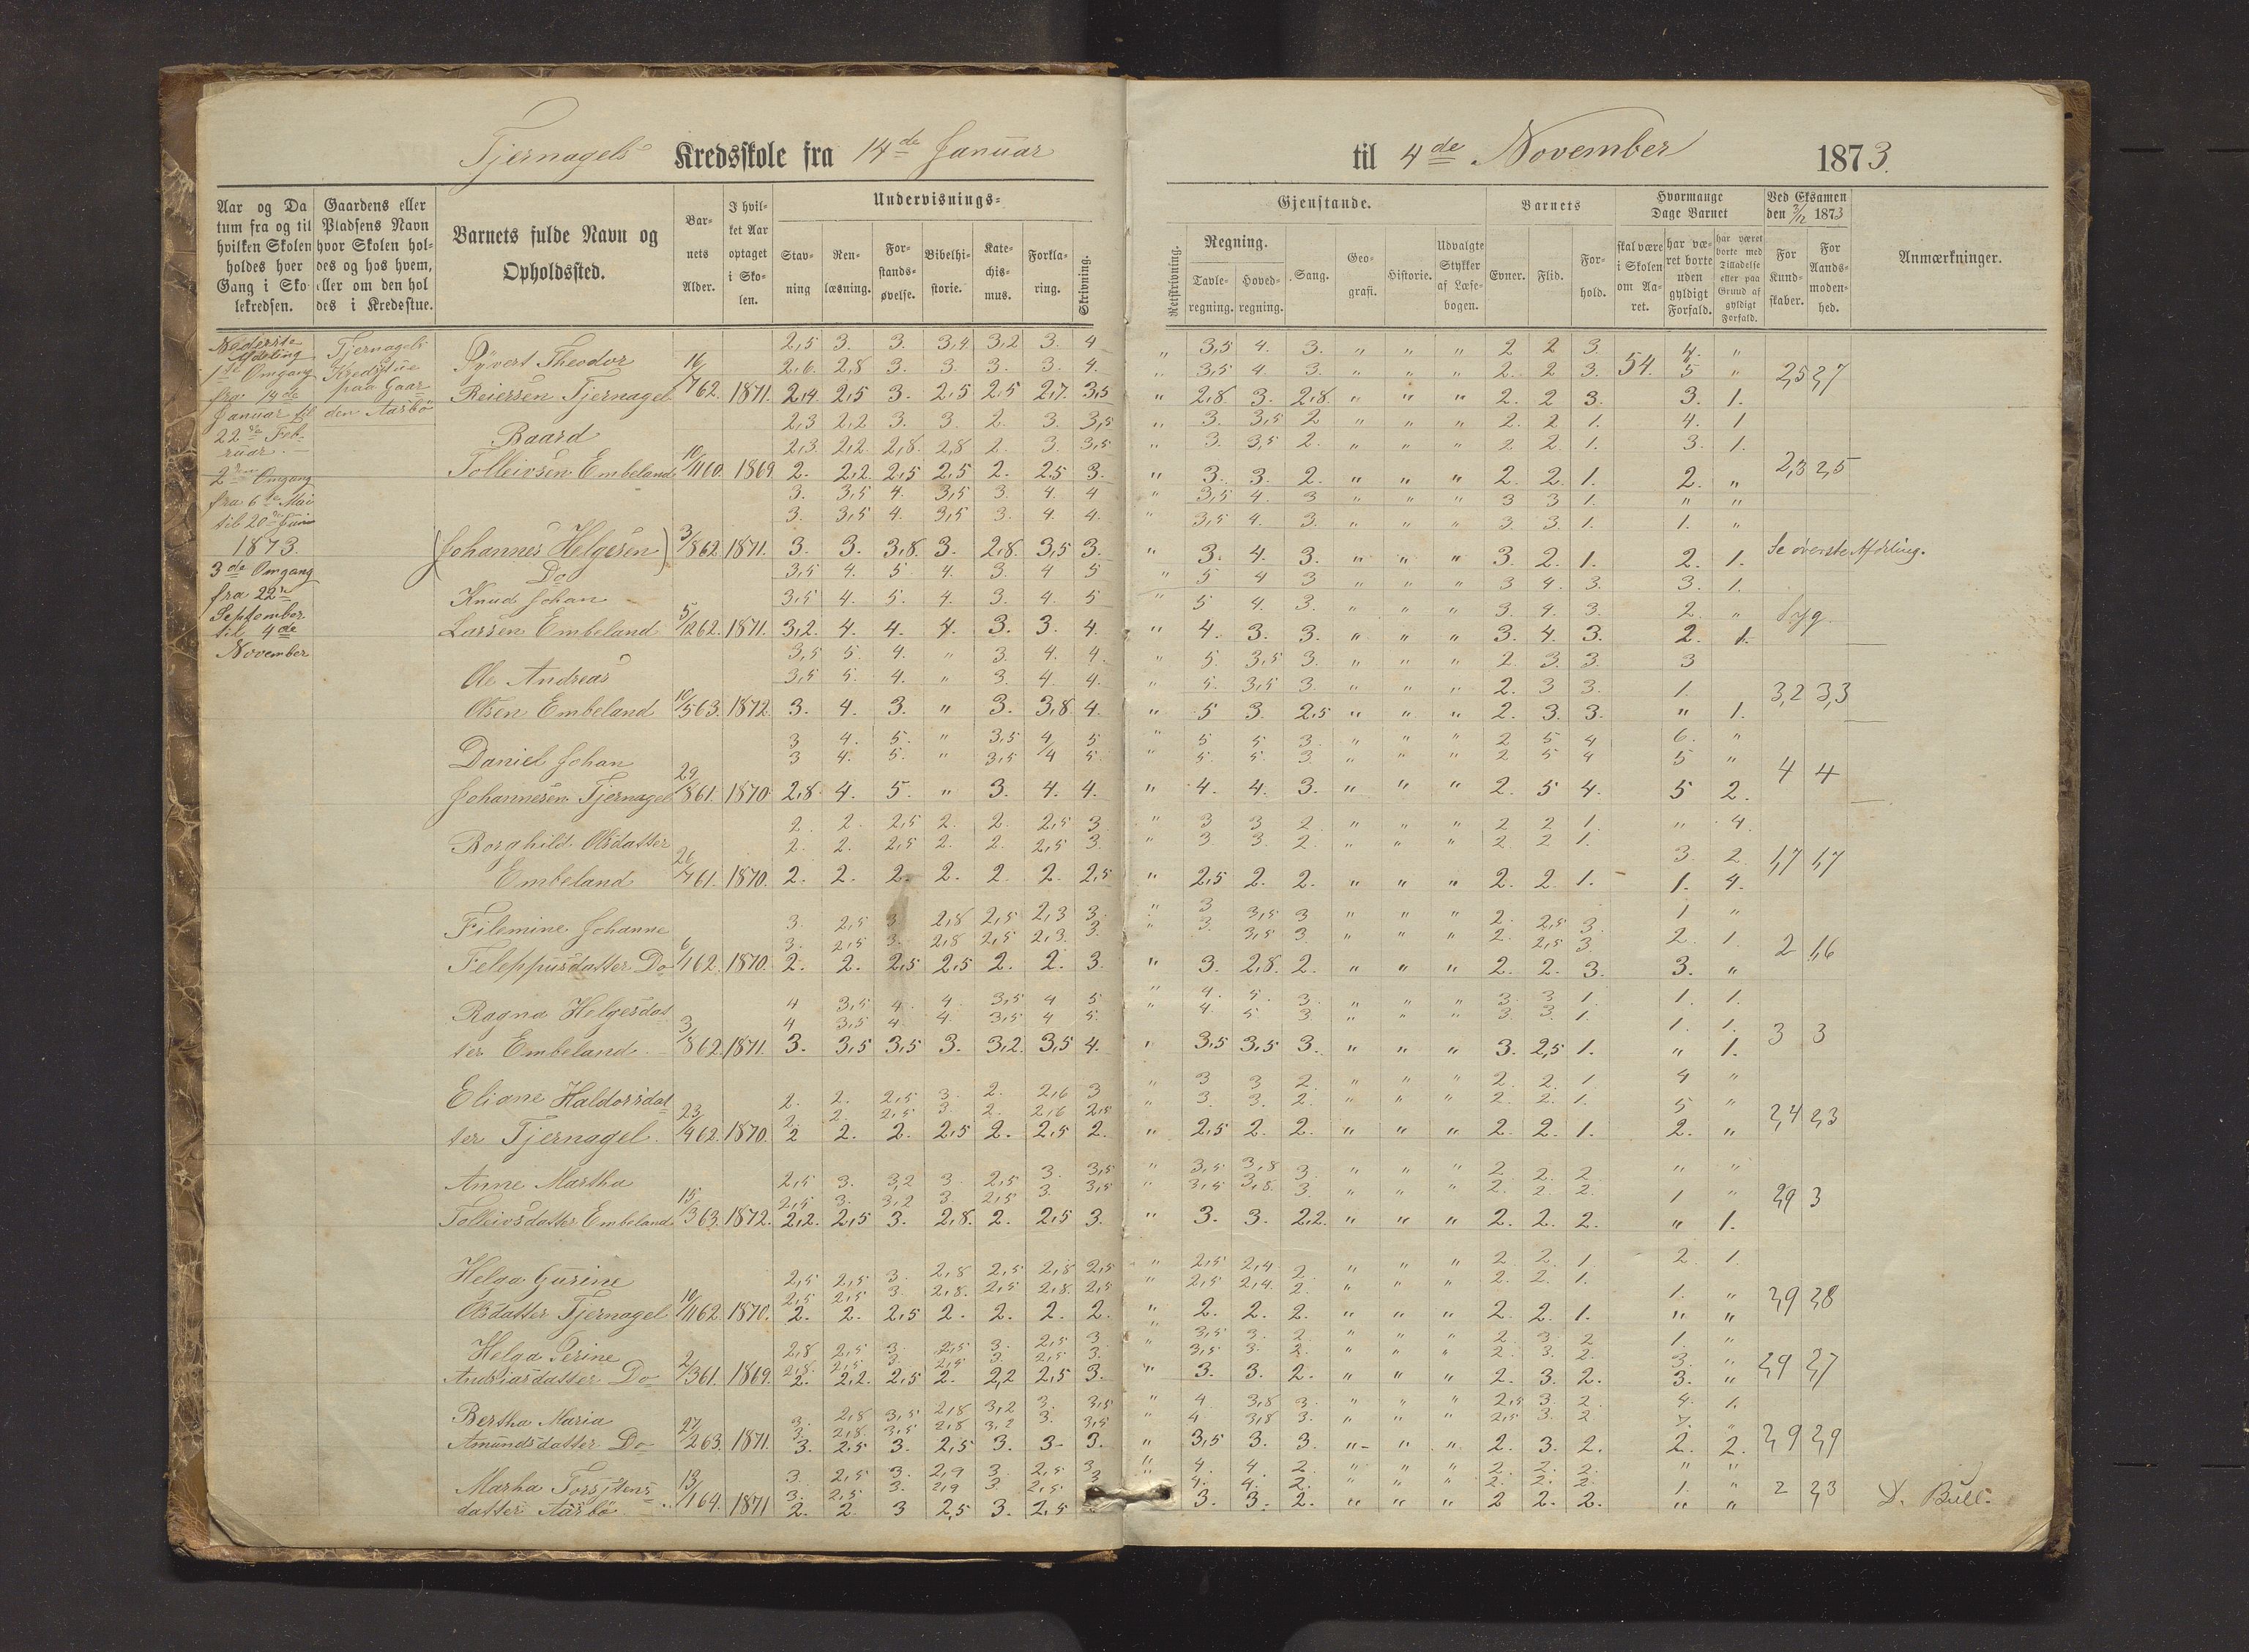 Tjernagels Kredsskole fra 14de Januar
Aar og Da
tum fra og til
hvilken Skolen
holdes hver
Gang i Sko
lekredsen.
Gaardens eller
Pladsens Navn
hvor Skolen hol-
des og hos hvem,
eller om den hol
des i Kredsstue.
Barnets fulde Navn og
Opholdssted.
Bar-
nets
Alder.
I hvil-
ket Aar
optaget
i Sko-
len.
Undervisnings-
Stav-
ning
Ren-
læsning.
For-
stands-
øvelse.
Bibelhi-
storie.
Kate-
chis-
mus.
Forkla-
ring.
Skrivning.
Nederste
Afdeling
1ste Omgang
fra 14de
Januar til
22de Feb-
ruar.
2den Omgang
fra 6te Mai
til 20de Juni
1873.
3de Omgang
fra 22de
September
til 4de
November
Tjernagels
Kredsstue
paa Gaar
den Aarbø
2,5 3. 3. 3,4 3,2 3. 4
Syvert Theodor 2,6. 2,8 3. 3. 3. 3. 4.
Reiersen Tjernagel 16/762. 1871. 2,4. 2,5 3. 2,5 2,5 2,7. 3,5
2,3 2,2 3. 3. 2. 3. 3,5
Baard 2,3. 2,2. 2,8. 2,8 2. 3. 3,5
Tolleivsen Embeland 10/1160. 1869. 2. 2,2. 2,5 2,5 2. 2,5 3.
3. 3,5 4. 3,5 3. 4. 4
3. 3,5 4. 3,5 3. 4. 4.
(Johannes Helgesen) 3/862. 1871. 3. 3. 3,8. 3. 2,8. 3,5 3.
Do 3,5 4. 5 4. 3. 4 5
Knud Johan 3,5 4. 5. 4. 3. 4. 5
Larsen Embeland 5/1262. 1871. 3,2. 4. 4. 4. 3. 3. 4.
3,5 5. 4. " 3. 4. 4.
Ole Andreas 3,5 5. 4. " 3. 4. 4.
Olsen Embeland 10/563. 1872 3. 4. 3. " 3. 3,8 4.
3 4. 5. " 3,5 4 5
Daniel Johan 3 4. 5. " 3,5 4 5
Johannesen Tjernagel 29/861. 1870 2,8 4. 5. " 3. 4. 4.
2. 2. 2,5 2. 2. 2,5 3
Borghild Olsdatter 2. 2. 2,5 2. 2. 2,5 3.
Embeland 26/761. 1870. 2. 2. 2. 2. 2. 2. 2,5
3. 2,5 3 2,8 2,5 2,3 3.
Filemine Johanne 3. 2,5 3. 2,8 2,5 2,3. 3.
Feleppusdatter Do 6/162. 1870. 2. 2. 2,5 2,5 2. 2. 3.
4 3,5 4. 4. 3,5 4 5
Ragna Helgesdat 4 3,5 4. 4. 3,5 4 5.
ter Embeland. 3/862. 1871. 3. 3,5 3,5 3. 3,2. 3,5 4.
2. 2. 2,5 3. 2. 2,6 3
Eliane Haldorsdat 2. 2. 2,5 3. 2. 2,6 2,5
ter Tjernagel. 23/462. 1870. 2 2. 2. 2,5 2. 2,5 2.
2,5 3. 3,2 3. 2,5 3. 3,5
Anne Martha 2,5 3. 3,2 3. 2,5 3. 3,5
Tolleivsdatter Embeland 15/363. 1872. 2,2. 2,5 3. 2,8. 2. 2,5 3.
2,5 2,5 3. 2,8 2,5 2,8 2,5
Helga Gurine 2,5 2,5 3. 2,8. 2,5 2,8. 2,5
Olsdatter Tjernagel 10/1162. 1870. 2. 2. 2,5 2. 2. 2. 2.
2,8 2,5 3. 2,5 3. 2,5 3
Helga Serine 2,8. 2,5 3. 2,5 3. 2,5 3.
Andriasdatter Do 2/361. 1869. 2. 2,2. 2,5 2. 2,2 2,5 3.
3. 2,8 3,5 2,8 3,2 3. 3,5
Bertha Maria 3. 2,8. 3,5 2,8 3,2 3. 3,5
Amundsdatter Do 27/263. 1871. 3. 2,5 3. 2,5 3. 3- 3.
3. 2,5 3. 2,9 3. 2,5 3
Martha Torstens- 3. 2,5 3. 2,9 3. 2,5 3
datter Aarbø 13/164. 1871 2. 2. 3 2,5 3. 2,5
til 4de November 1873.
Gjenstande.
Retskrivning.
Regning.
Tavle-
regning.
Hoved-
regning.
Sang.
Geo-
grafi.
Historie.
Udvalgte
Stykker
af Læse-
bogen.
Barnets
Evner.
Flid.
For-
hold.
Hvormange
Dage Barnet
skal være
i Skolen
om Aa-
ret.
har væ-
ret borte
uden
gyldigt
Forfald.
har været
borte med
Tilladelse
eller paa
Grund af
gyldigt
Forfald.
Ved Eksamen
den 3/12 1873
For
Kund-
skaber.
For
Aands-
moden-
hed.
Anmærkninger.
" 3,5 4. 3. " " " 2 2 3. 4. "
" 3,5 4. 3. " " " 2. 2 3. 54. 5 " 2,5 2,7
" 2,8 3. 2,8. " " " 2. 2 3. 3. 1.
" 3. 3,5 2 " " " 2. 2 1. 4. 1
" 3. 3,5 2. " " " 2. 2 1. 3. 1.
" 3. 3. 2. " " " 2. 2. 1. 2. " 2,3 2,5
" 3,5 4. 3 " " " 3 3 1. " "
" 3,5 4. 3. " " " 3. 3. 1. 1. "
" 3. 4. 3. " " " 3. 2. 1. 2. 1. Se øverste Afdeling.
" 5 4 3 " " " 3 4. 3. 3. 1.
" 5 4. 3. " " " 3. 4. 3. 2. " Syg.
" 4. 3. 3. " " " 3. 4. 3. 2. 1.
" 5. 3,5 3. " " " 2. 3. 3. 3
" 5. 3,5 3. " " " 2. 3 3. 1. 3,2 3,3
" 5 3. 2,5 " " " 2. 3. 3. " 1.
" 5 5 3. " " " 2 5 4 6. "
" 5. 5. 3. " " " 2 5 4 5 " 4 4
" 4. 4. 3. " " " 2. 5 4. 5 2.
" 3 3 2. " " " 2 2 1. " 4.
" 3. 3. 2. " " " 2. 2 1. 3. 2 1,7 1,7
" 2,5 2. 2. " " " 2. 2. 1. 1. 4.
" 3 3,5 3 " " " 2. 2,5 3. 1 "
" 3. 3,5 3. " " " 2. 2,5 3. 2. 1. 2 1,6
" 3. 2,8. 2. " " " 2. 2. 3. 3. "
" 4. 5. 3. " " " 3. 3 1. 1. 1.
" 4. 5 3. " " " 3. 3. 1. 1. 1. 3 3
" 3,5 3,5 3. " " " 3. 2,5 1. " 1.
" 3 3 2. " " " 2. 2. 1 4 "
" 3. 3. 2. " " " 2. 2. 1. 5 " 2,4 2,3
" 2,5 2. 2. " " " 2. 2. 1. 2. "
" 3,5 3,8 3. " " " 2. 2. 2 " "
" 3,5 3,8. 3. " " " 2. 2. 2. 1 " 2,9 3
" 3. 3. 2,2. " " " 2. 2. 2. " 1.
" 2,5 2,4 2 " " " 2 2. 1. 2. 1.
" 2,5 2,4. 2. " " " 2. 2. 1. 1. " 2,9 2,8
" 2. 2. 2. " " " 2. 2. 1. " "
" 3,5 3. 2. " " " 2. 3. 2 1. "
" 3,5 3. 2. " " " 2. 3. 2. 3. " 2,9 2,7
" 3. 3. 2. " " " 2. 3. 2. 3. "
" 4. 3,8 3. " " " 2,5 3. 2. 4. 1.
" 4 3,8 3. " " " 2,5 3. 2 "
" 3,5 3. 3. " " " 2. 3. 2. 2. 2. 2,9 2,9
" 4. 4. 2. " " " 2. 2. 2. " "
" 4. 4. 2. " " " 2. 2. 2. 1. " 2 2,3
" 3. 3. 2. " " " 2 2. 2. " " D. Bull.